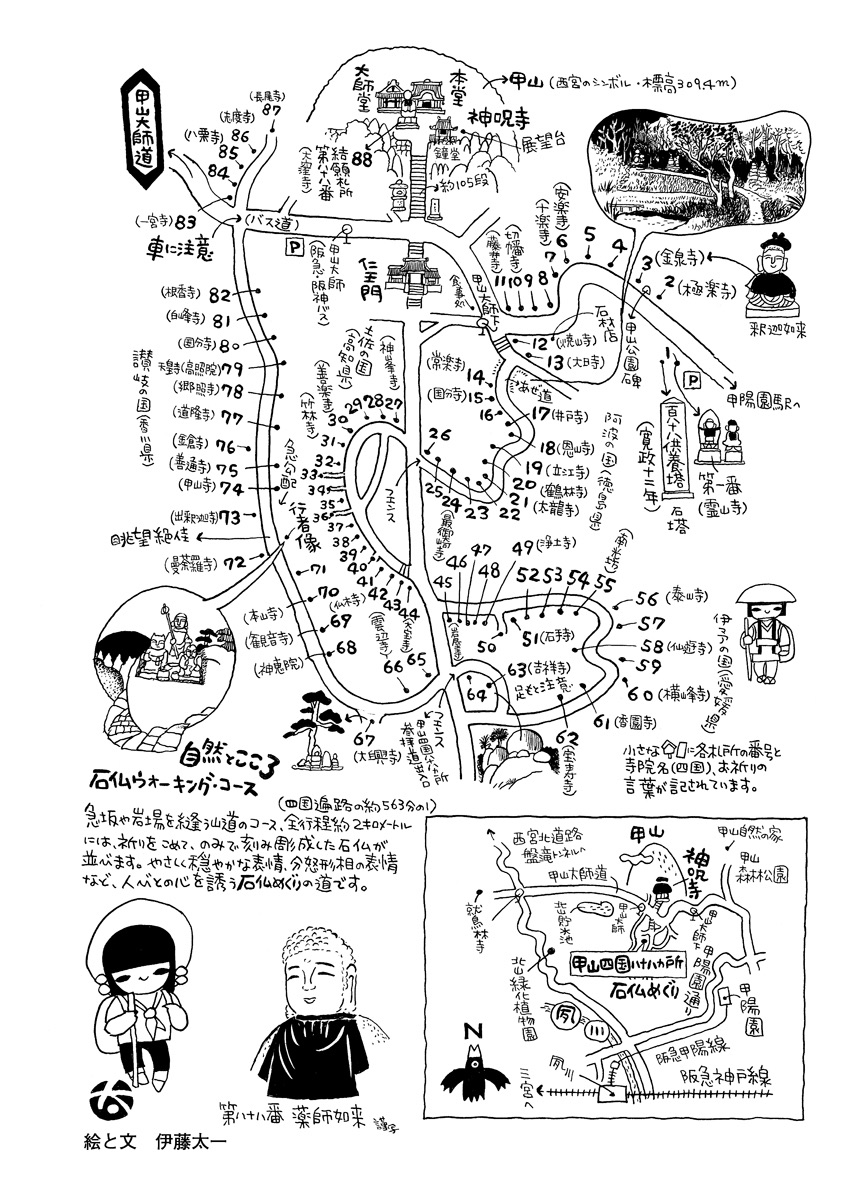 甲山大師道
(長尾寺)
87
(志度寺)
86
(八栗寺)
85
84
(一宮寺) 83
車に注意
大師堂
本堂
甲山 (西宮のシンボル・標高309.4m)
神呪寺
展望台
鐘堂
結願札所
第八十八番
(大窪寺)
88
約105段
(バス道)
P
甲山大師
(阪急・阪神バス)
仁王門
食事処
甲山大師下
(藤井寺)
(切幡寺)
(十楽寺)
(安楽寺)
11 10 9 8 7 6 5 4
3 (金泉寺)
2 (極楽寺)
釈迦如来
1
P
甲陽園駅へ
甲山公園碑
石材店
12 (焼山寺)
13 (大日寺)
あぜ道
(常楽寺)
14
(国分寺)
15
16
17 (井戸寺)
18 (恩山寺)
19 (立江寺)
20 (鶴林寺)
21 (太龍寺)
22
23
24
25
26
阿波の国(徳島県)
百八十八供養塔
(寛政十二年)
石塔
第一番
(霊山寺)
(根香寺) 82
(白峰寺) 81
(国分寺) 80
天皇寺(高照院) 79
(郷照寺) 78
(道隆寺) 77
(金倉寺) 76
(善通寺) 75
(甲山寺) 74
(出釈迦寺) 73
眺望絶佳
(曼荼羅寺) 72
讃岐の国(香川県)
急勾配
行者像
土佐の国
(高知県)
(神峯寺)
(善楽寺)
(竹林寺)
27
28
29
30
31
32
33
34
35
36
37
38
39
40
41
42
43
44
フェンス
(最御崎寺)
45
46
47
48
49 (浄土寺)
50
51 (石手寺)
52 53 54 55
(南光坊)
56 (泰山寺)
57
58 (仙遊寺)
59
60 (横峰寺)
61 (香園寺)
62
(宝寿寺)
63 (吉祥寺)
足もと注意
64
伊予の国(愛媛県)
71
(本山寺) 70
(観音寺) 69
(神恵院) 68
67
(大興寺)
(仏木寺)
(雲辺寺)
(大宝寺)
(岩屋寺)
66
65
フェンス
甲山四国八十八ヶ所
参拝道登り口
小さな に各札所の番号と
寺院名(四国)、お祈りの
言葉が記されています。
自然とこころ
石仏ウォーキング・コース
(四国遍路の約563分の1)
急坂や岩場を縫う山道のコース、全行程約2キロメートル
には、祈りをこめて、のみで刻み彫成した石仏が
並べます。やさしく穏やかな表情、分怒形相の表情
など、人びとの心を誘う石仏めぐりの道です。
第八十八番 薬師如来
絵と文 伊藤太一
西宮北道路
盤滝トンネルへ
甲山
甲山自然の家
神呪寺
甲山
森林公園
甲山大師道
鷲林寺
北山貯水池
甲山大師
甲山大師下
甲山四国八十八カ所
石仏めぐり
甲陽園通り
甲陽園
北山緑化植物園
夙川
N
夙川
阪急甲陽線
阪急神戸線
三宮へ